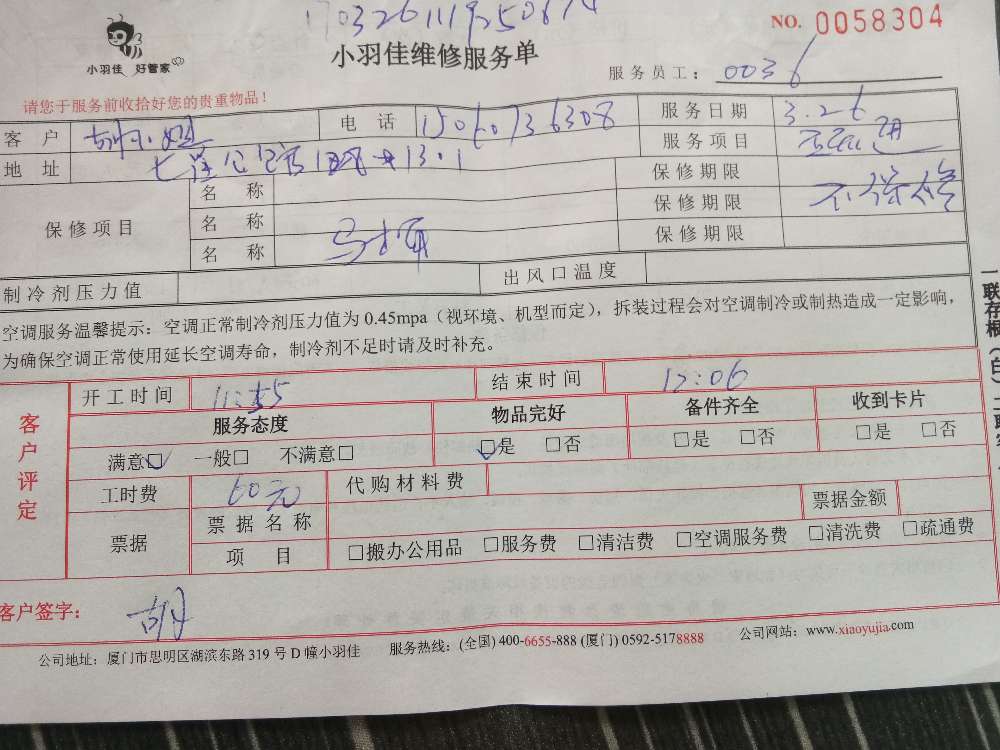 小羽佳 好管家
小羽佳维修服务单
NO. 0058304
服务员工: 0036
请您于服务前收拾好您的贵重物品!
客 户 胡小姐 电 话 15060736308 服务日期 3.26
地 址 服务项目
保修项目 名 称 保修期限
名 称 保修期限 不保修
名 称 马桶 保修期限
制冷剂压力值 出风口温度
空调服务温馨提示: 空调正常制冷剂压力值为 0.45mpa(视环境、机型而定),拆装过程会对空调制冷或制热造成一定影响,
为确保空调正常使用延长空调寿命,制冷剂不足时请及时补充。
客户评定
开工时间 11:55 结束时间 12:06
服务态度 物品完好 备件齐全 收到卡片
满意☑ 一般□ 不满意□ ☑是 □否 □是 □否 □是 □否
工时费 60元 代购材料费
票据 票据名称 票据金额
项 目 □搬办公用品 □服务费 □清洁费 □空调服务费 □清洗费 □疏通费
客户签字: 胡
公司地址: 厦门市思明区湖滨东路 319 号 D 幢小羽佳 服务热线: (全国) 400-6655-888 (厦门) 0592-5178888 公司网站: www.xiaoyujia.com
一联存根(白)